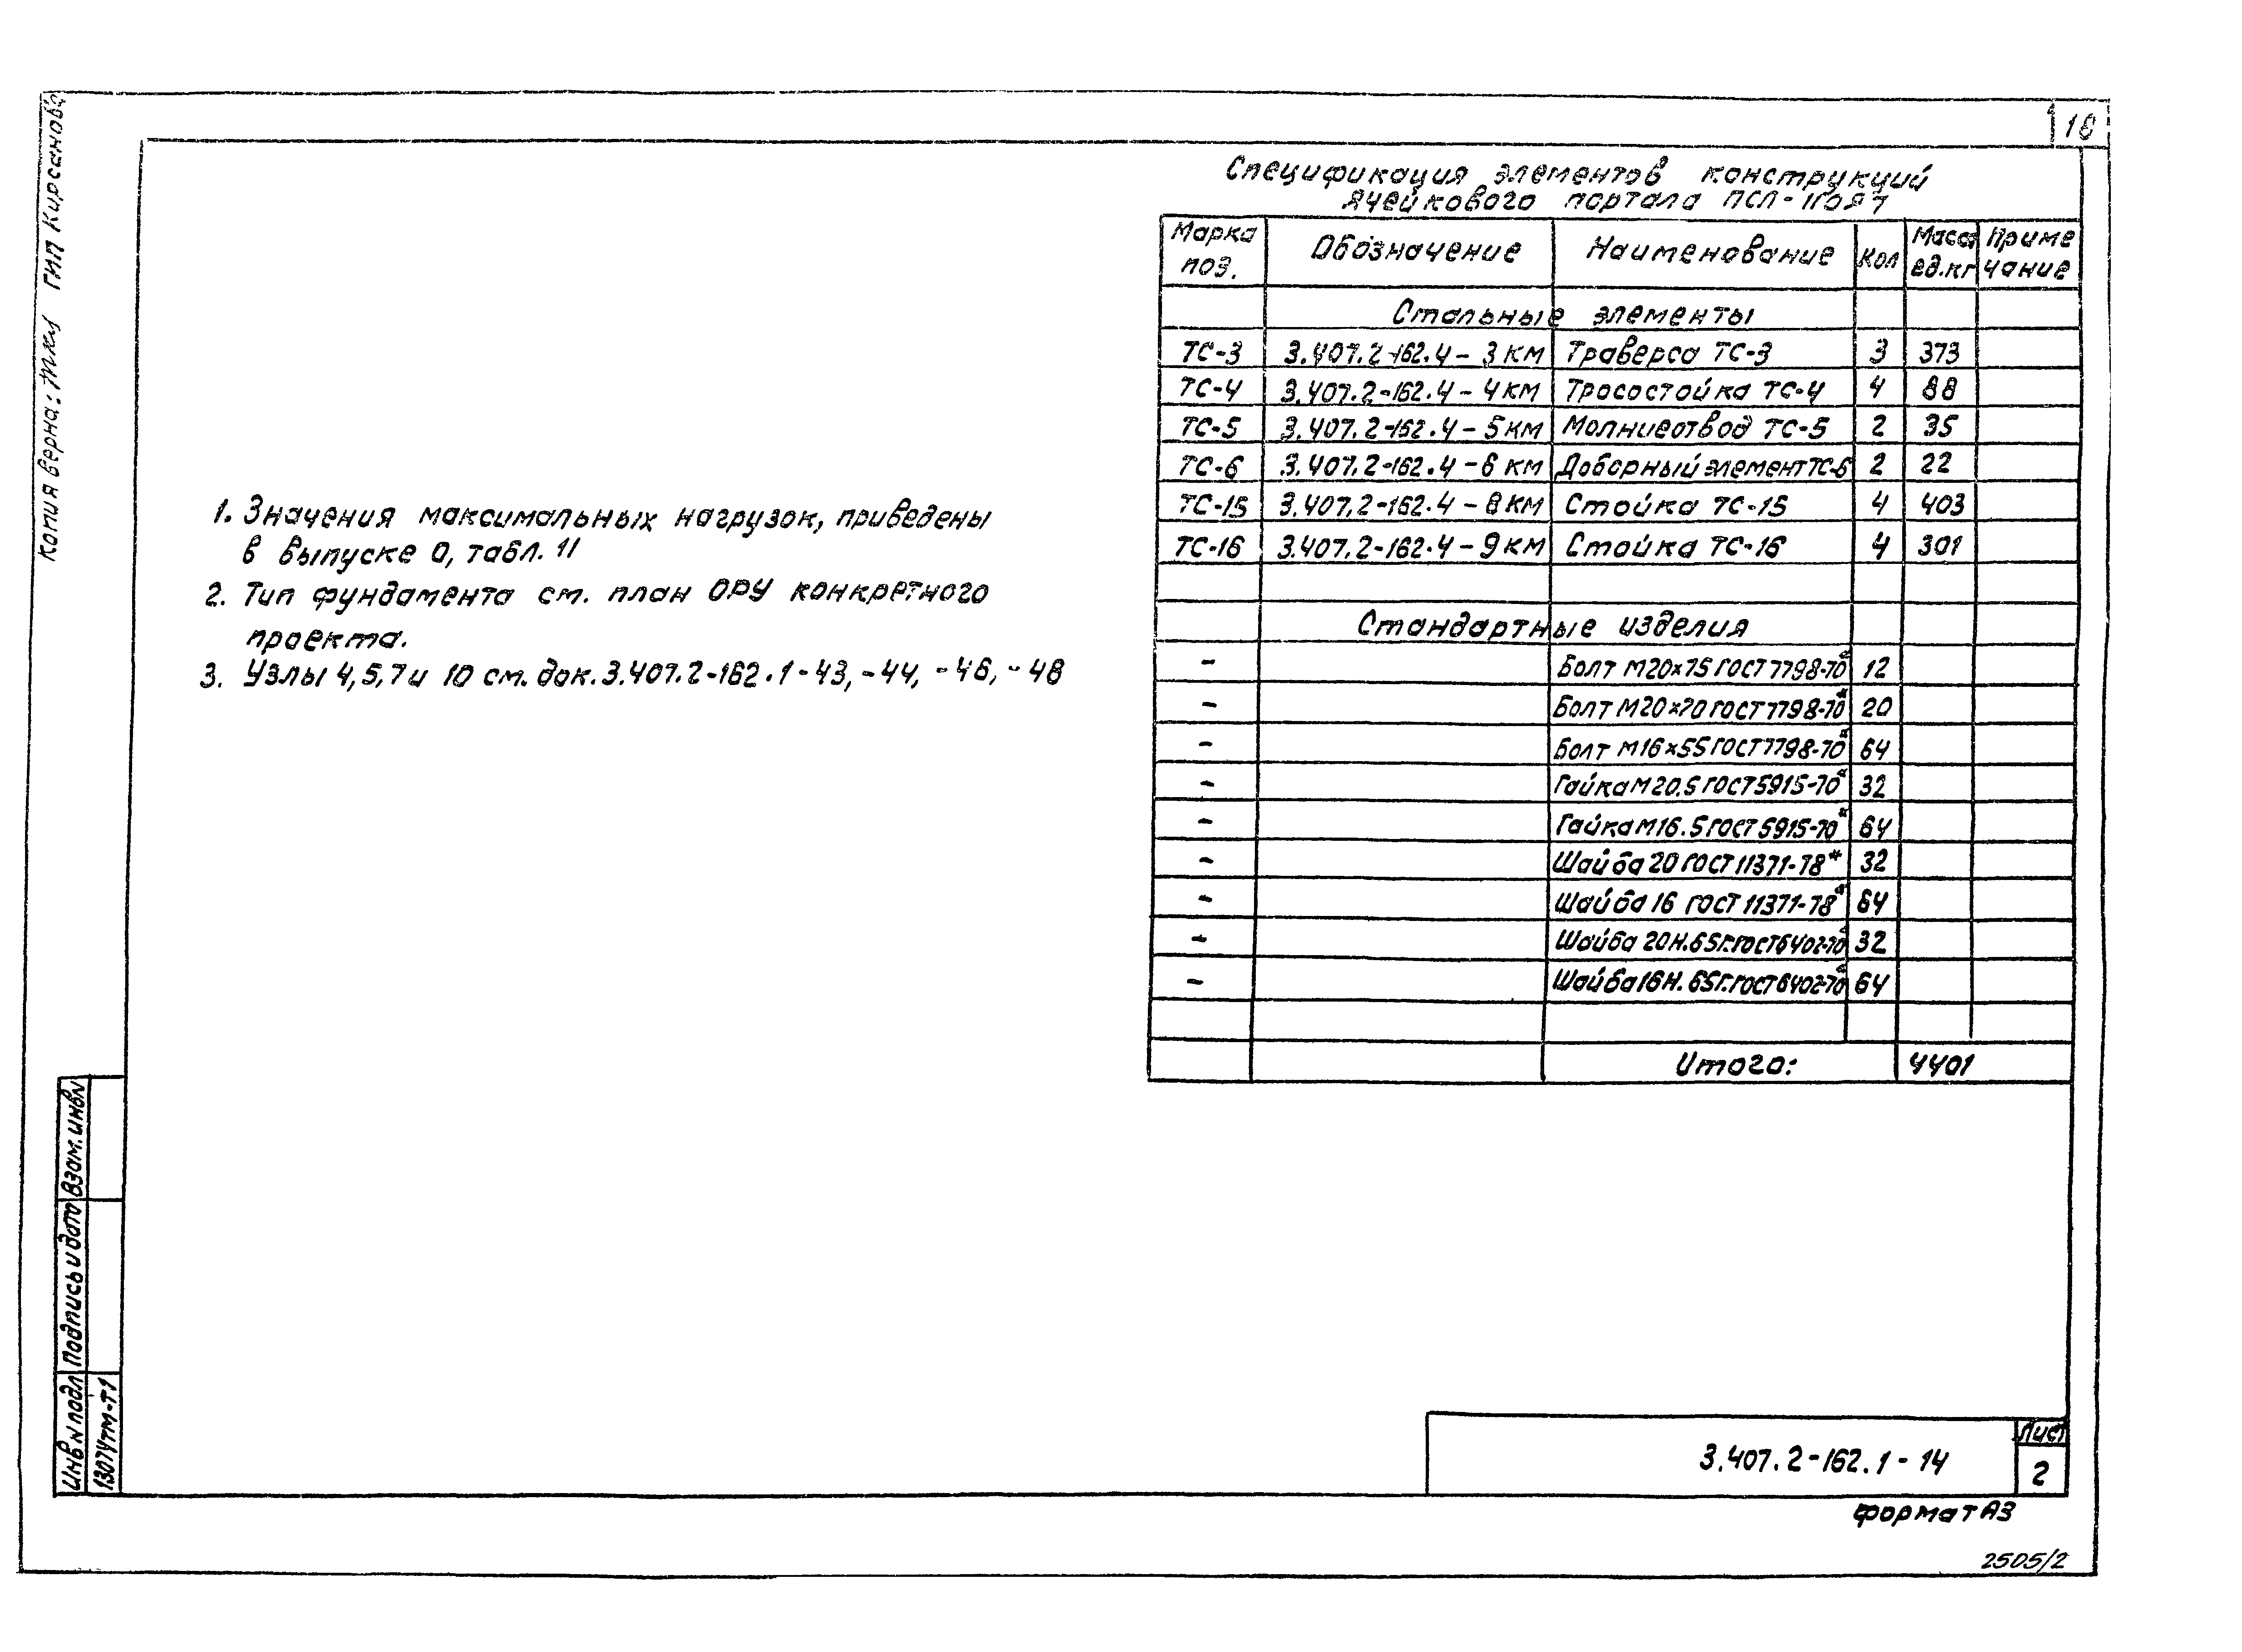 18
Копия верна: ГИП Кирсанова
Спецификация элементов конструкций
ячейкового портала ПСЛ-110Я7
Марка поз. Обозначение Наименование Кол Масса ед.кг Приме чание
Стальные элементы
ТС-3 3.407.2-162.4-3КМ Траверса ТС-3 3 373
ТС-4 3.407.2-162.4-4КМ Тросостойка ТС-4 4 88
ТС-5 3.407.2-162.4-5КМ Молниеотвод ТС-5 2 35
ТС-6 3.407.2-162.4-6КМ Доборный элемент ТС-6 2 22
ТС-15 3.407.2-162.4-8КМ Стойка ТС-15 4 403
ТС-16 3.407.2-162.4-9КМ Стойка ТС-16 4 301
Стандартные изделия
- Болт М20х75 ГОСТ 7798-70* 12
- Болт М20х70 ГОСТ 7798-70* 20
- Болт М16х55 ГОСТ 7798-70* 64
- Гайка М20.5 ГОСТ 5915-70* 32
- Гайка М16.5 ГОСТ 5915-70* 64
- Шайба 20 ГОСТ 11371-78* 32
- Шайба 16 ГОСТ 11371-78* 64
- Шайба 20Н.65Г.ГОСТ 6402-70* 32
- Шайба 16Н.65Г.ГОСТ 6402-70* 64
Итого: 4401
1. Значения максимальных нагрузок, приведены
в выпуске 0, табл. 11
2. Тип фундамента см. план ОРУ конкретного
проекта.
3. Узлы 4,5,7 и 10 см. док. 3.407.2-162.1-43, -44, -46, -48
Взам.инвN
Подпись и дата
Инв N подл
13074тм-т1
3.407.2-162.1-14
Лист
2
Формат А3
2505/2